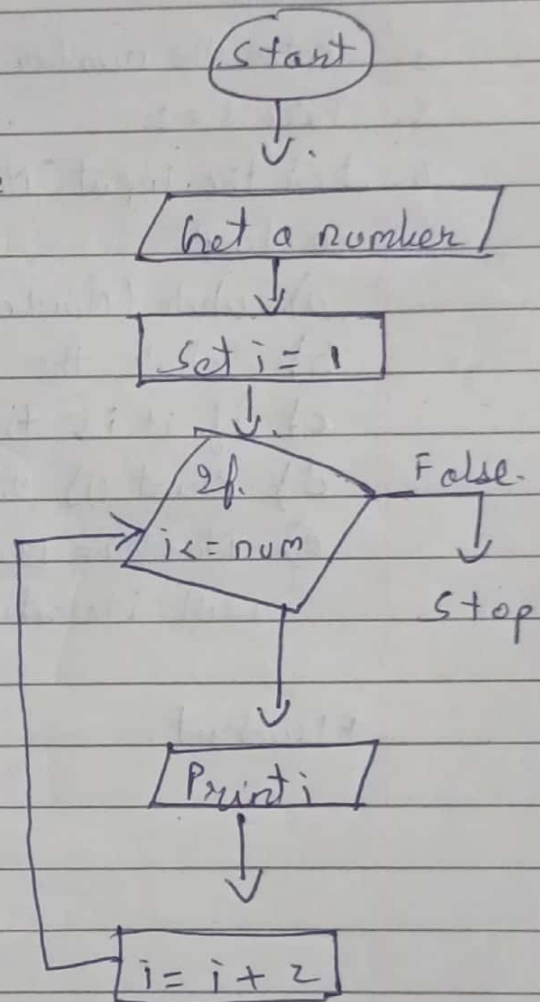 Start
Get a number
Set i = 1
If.
i <= num
False.
Stop
Print i
i = i + 2